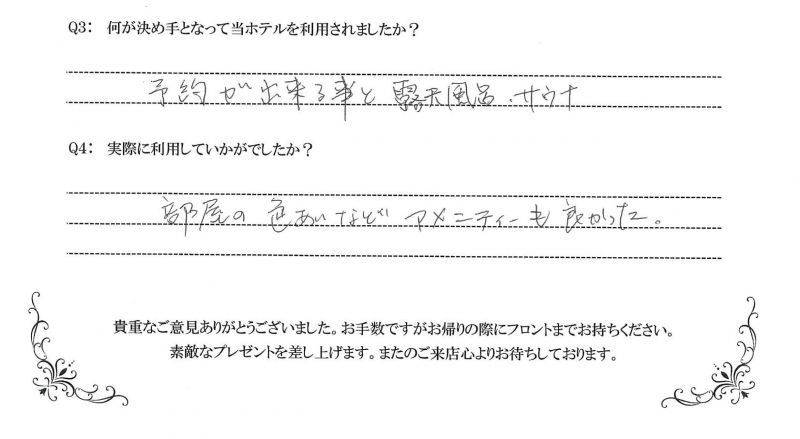 Q3: 何が決め手となって当ホテルを利用されましたか？
予約が出来る事と露天風呂、サウナ
Q4: 実際に利用していかがでしたか？
部屋の色あいなど アメニティーも良かった。
貴重なご意見ありがとうございました。お手数ですがお帰りの際にフロントまでお持ちください。
素敵なプレゼントを差し上げます。またのご来店心よりお待ちしております。